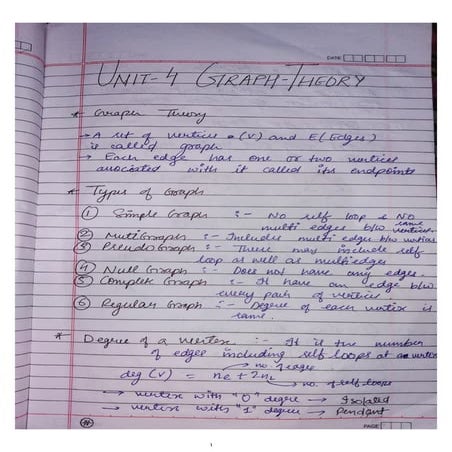 DATE
UNIT-4 GRAPH-THEORY
* Graph Theory
→ A set of vertices (V) and E (Edges)
is called graph
→ Each edge has one or two vertices
associated with it called its endpoints
* Types of Graph
① Simple Graph :- No self loop & No
multi edges b/w same vertices.
② MultiGraph :- Includes multi edges b/w vertices
③ PseudoGraph :- There may include self
loop as well as multiedges
④ Null Graph :- Does not have any edges.
⑤ Complete Graph :- It have an edge b/w
every pair of vertices.
⑥ Regular Graph :- Degree of each vertex is
same.
* Degree of a vertex :- It is the number
of edges including self loops at a vertex
no. of edge
deg (v) = ne + 2nl
no. of self loops
→ vertex with "0" degree → Isolated
→ vertex with "1" degree → Pendant
PAGE